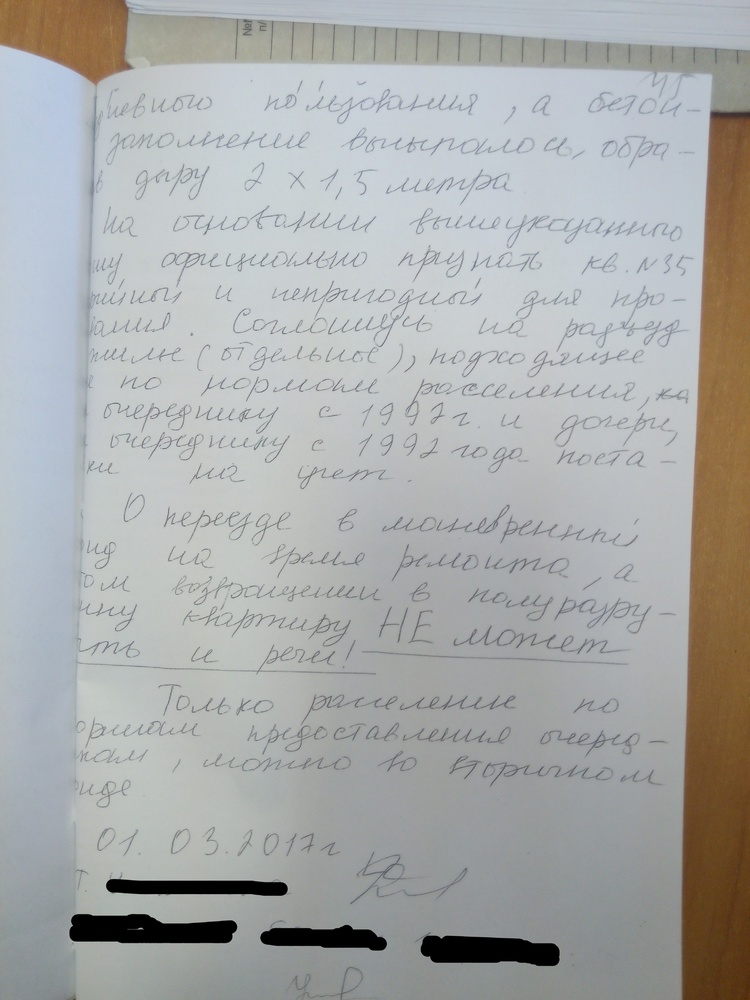 45
бневного пользования, а бетон-
заполнение высыпалось, обра-
в дыру 2 х 1,5 метра.
На основании вышеуказанного
шу официально признать кв. №35
рийный и непригодный для про-
вания. Соглашусь на разъезд
жилье (отдельные), подходящее
е по нормам расселения, ка
очереднику с 1997г. и дочери,
очереднику с 1992 года поста-
ки на учет.
О переезде в маневренный
нд на время ремонта, а
том возвращении в полуразру-
нну квартиру НЕ может
ыть и речи!
Только расселение по
ормам предоставления очеред-
кам, можно во вторичном
онде.
01. 03. 2017г
т.